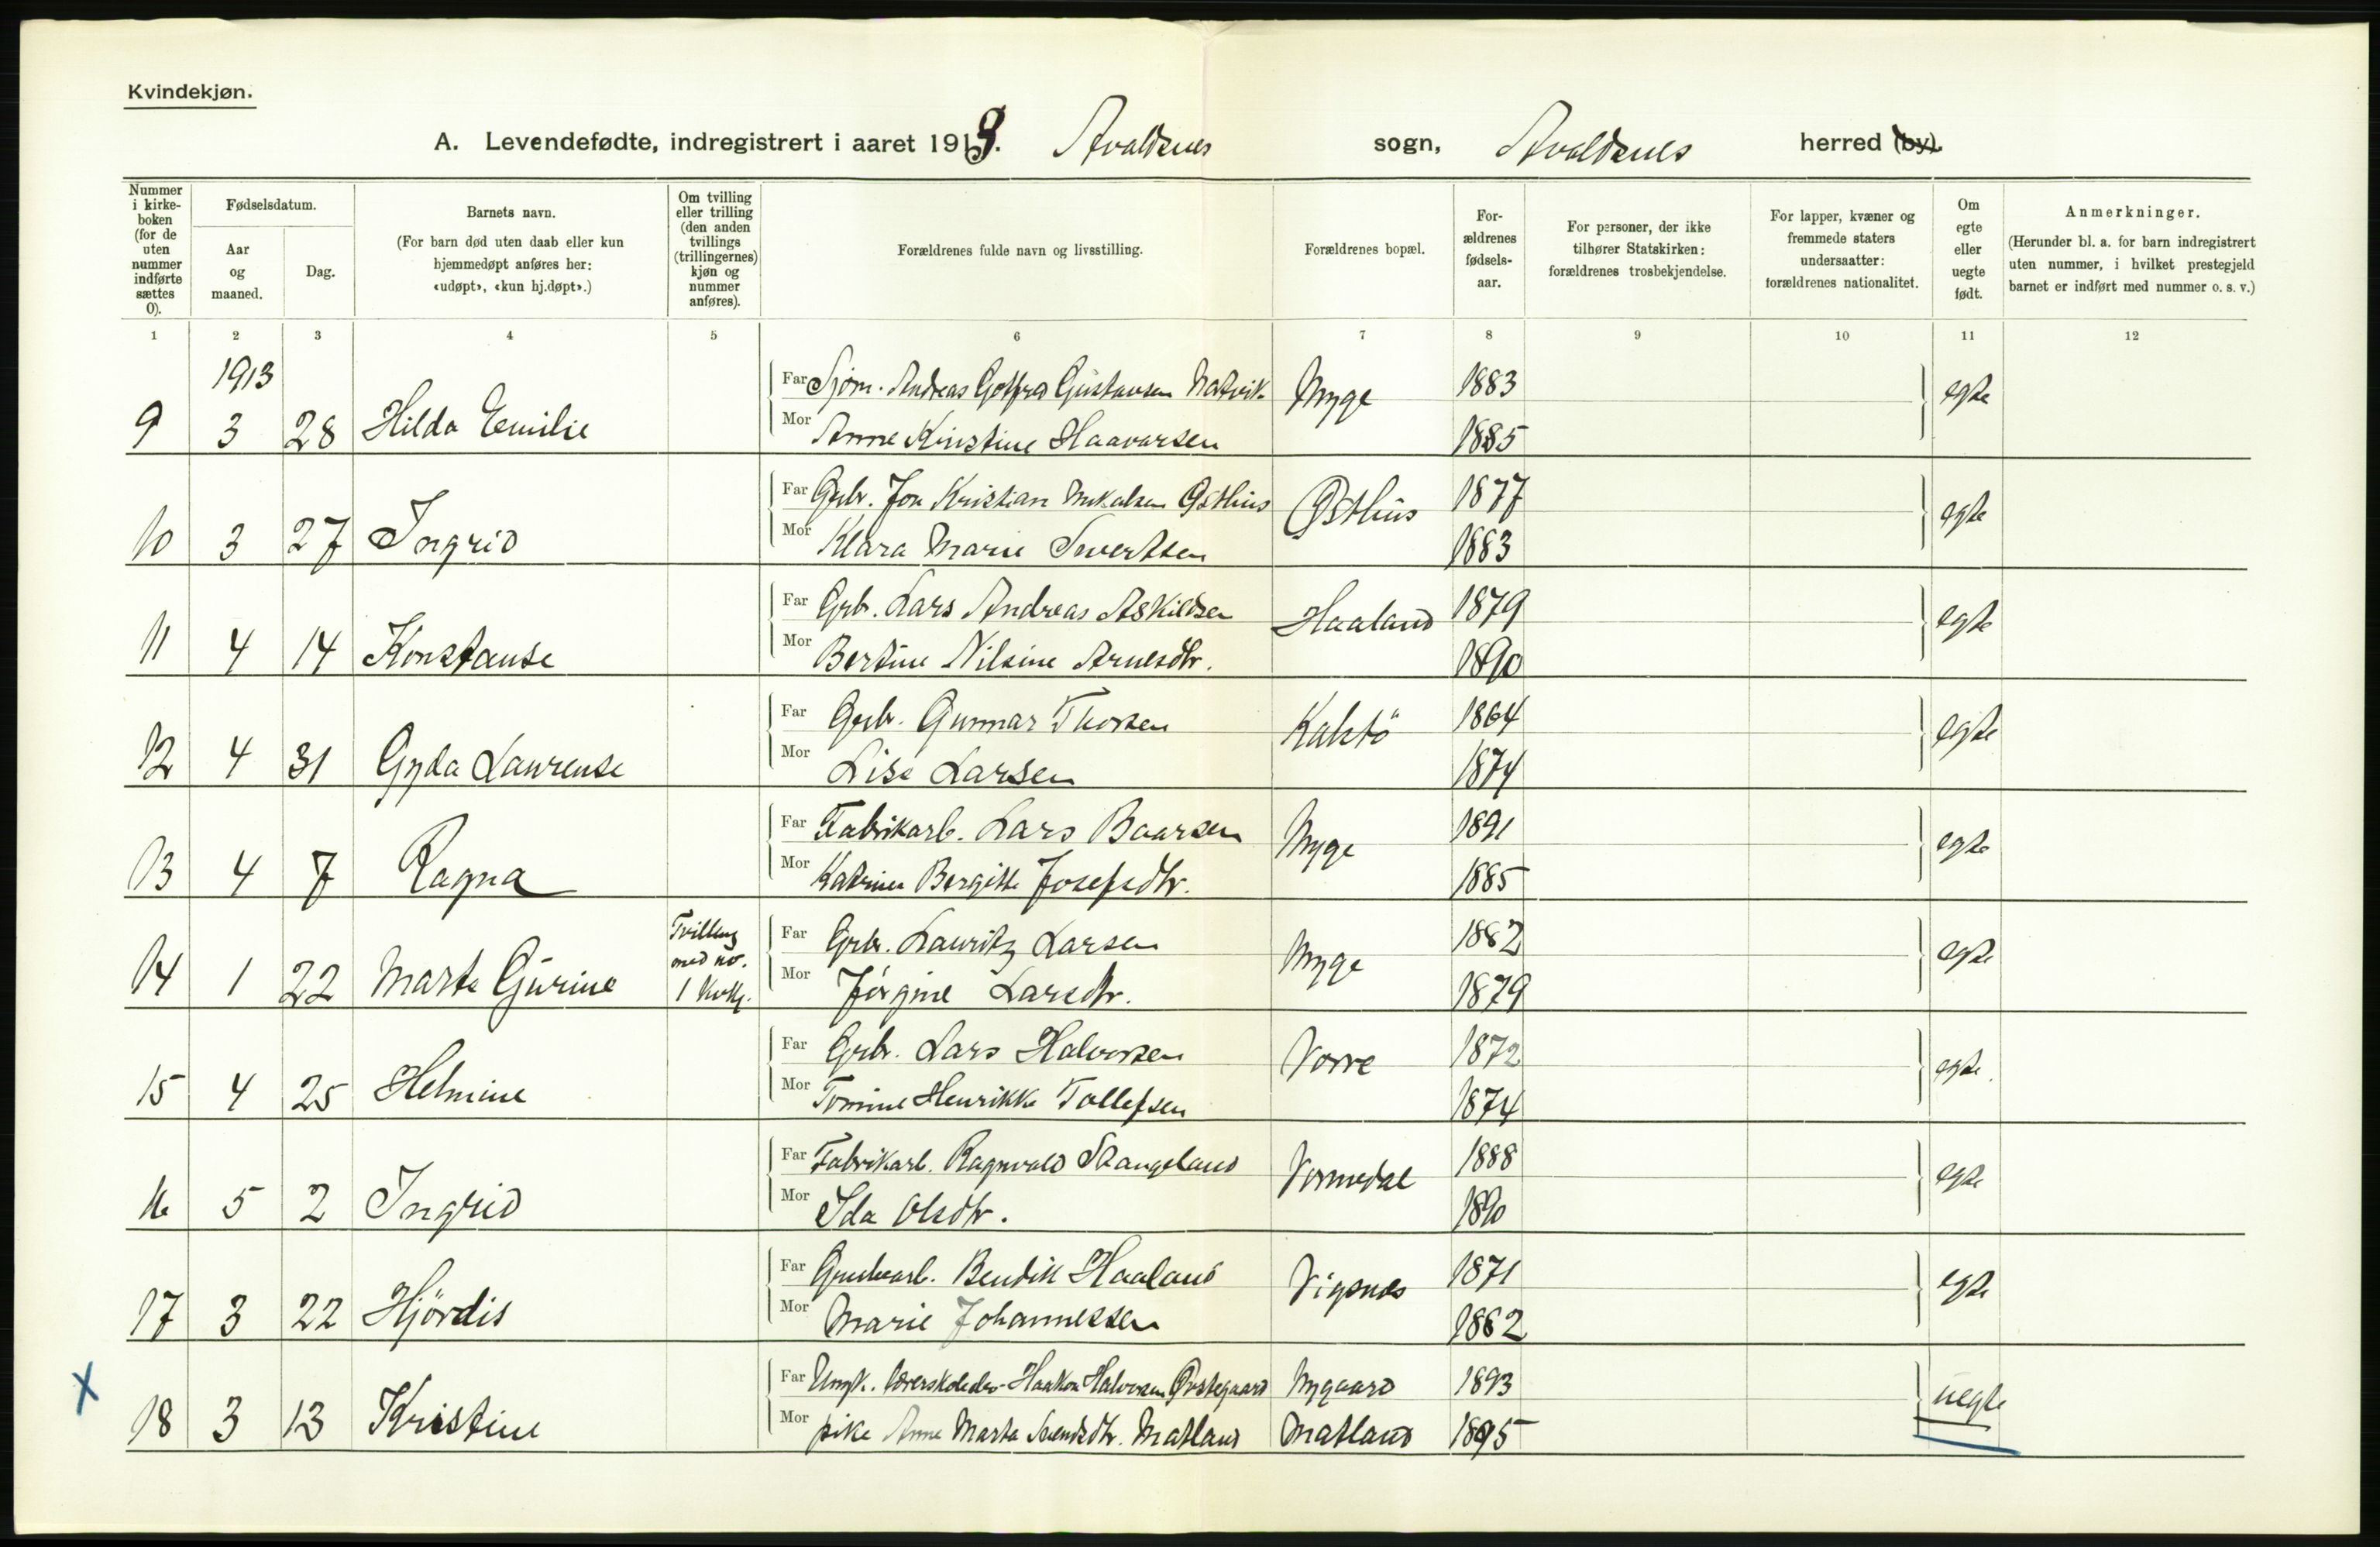 Kvindekjøn.
A. Levendefødte, indregistrert i aaret 1913. Avaldsnes sogn, Avaldsnes herred (by).
Nummer i kirke-boken (for de uten nummer indførte sættes 0).
Fødselsdatum.
Aar og maaned.
Dag.
Barnets navn.
(For barn død uten daab eller kun hjemmedøpt anføres her: «udøpt», «kun hj.døpt».)
Om tvilling eller trilling (den anden tvillings (trillingernes) kjøn og nummer anføres).
Forældrenes fulde navn og livsstilling.
Forældrenes bopæl.
For-ældrenes fødsels-aar.
For personer, der ikke tilhører Statskirken: forældrenes trosbekjendelse.
For lapper, kvæner og fremmede staters undersaatter: forældrenes nationalitet.
Om egte eller uegte født.
Anmerkninger.
(Herunder bl. a. for barn indregistrert uten nummer, i hvilket prestegjeld barnet er indført med nummer o. s. v.)
1 2 3 4 5 6 7 8 9 10 11 12
1913
Far Sjøm. Andreas Gotfred Gustavsen Matvik Myge 1883 egte
9 3 28 Hilda Emilie Mor Anne Kristine Haavarsen 1885
Far Grbr. Jon Kristian Mikalsen Østhus Østhus 1877 egte
10 3 27 Ingrid Mor Klara Marie Sivertsen 1883
Far Grb. Lars Andreas Askildsen Haaland 1879 egte
11 4 14 Konstanse Mor Bertine Nilsine Arnesdtr. 1890
Far Grbr. Gunnar Thorsen Kalstö 1864 egte
12 4 31 Gyda Laurense Mor Lise Larsen 1874
Far Fabrikarb. Lars Baarsen Myge 1891 egte
13 4 7 Ragna Mor Katrine Bergitte Josefsdtr. 1885
Tvilling med no. 1 kvkj.
Far Grbr. Lauritz Larsen Myge 1882 egte
14 1 22 Marta Gurine Mor Jørgine Larsdtr. 1879
Far Grbr. Lars Halvorsen Vorre 1872 egte
15 4 25 Helmine Mor Tomine Henrikke Tollefsen 1874
Far Fabrikarb. Ragnvald Stangeland Vormedal 1888 egte
16 5 2 Ingrid Mor Ida Olsdtr. 1890
Far Grubearb. Bendik Haaland Vigsnes 1871 egte
17 3 22 Hjördis Mor Marie Johannessen 1882
X
Far Ungk. Haakon Halvorsen Øvstegaard Nygaard 1893 uegte
18 3 13 Kristine Mor pike Anne Marta Svendsdtr. Matland Matland 1895